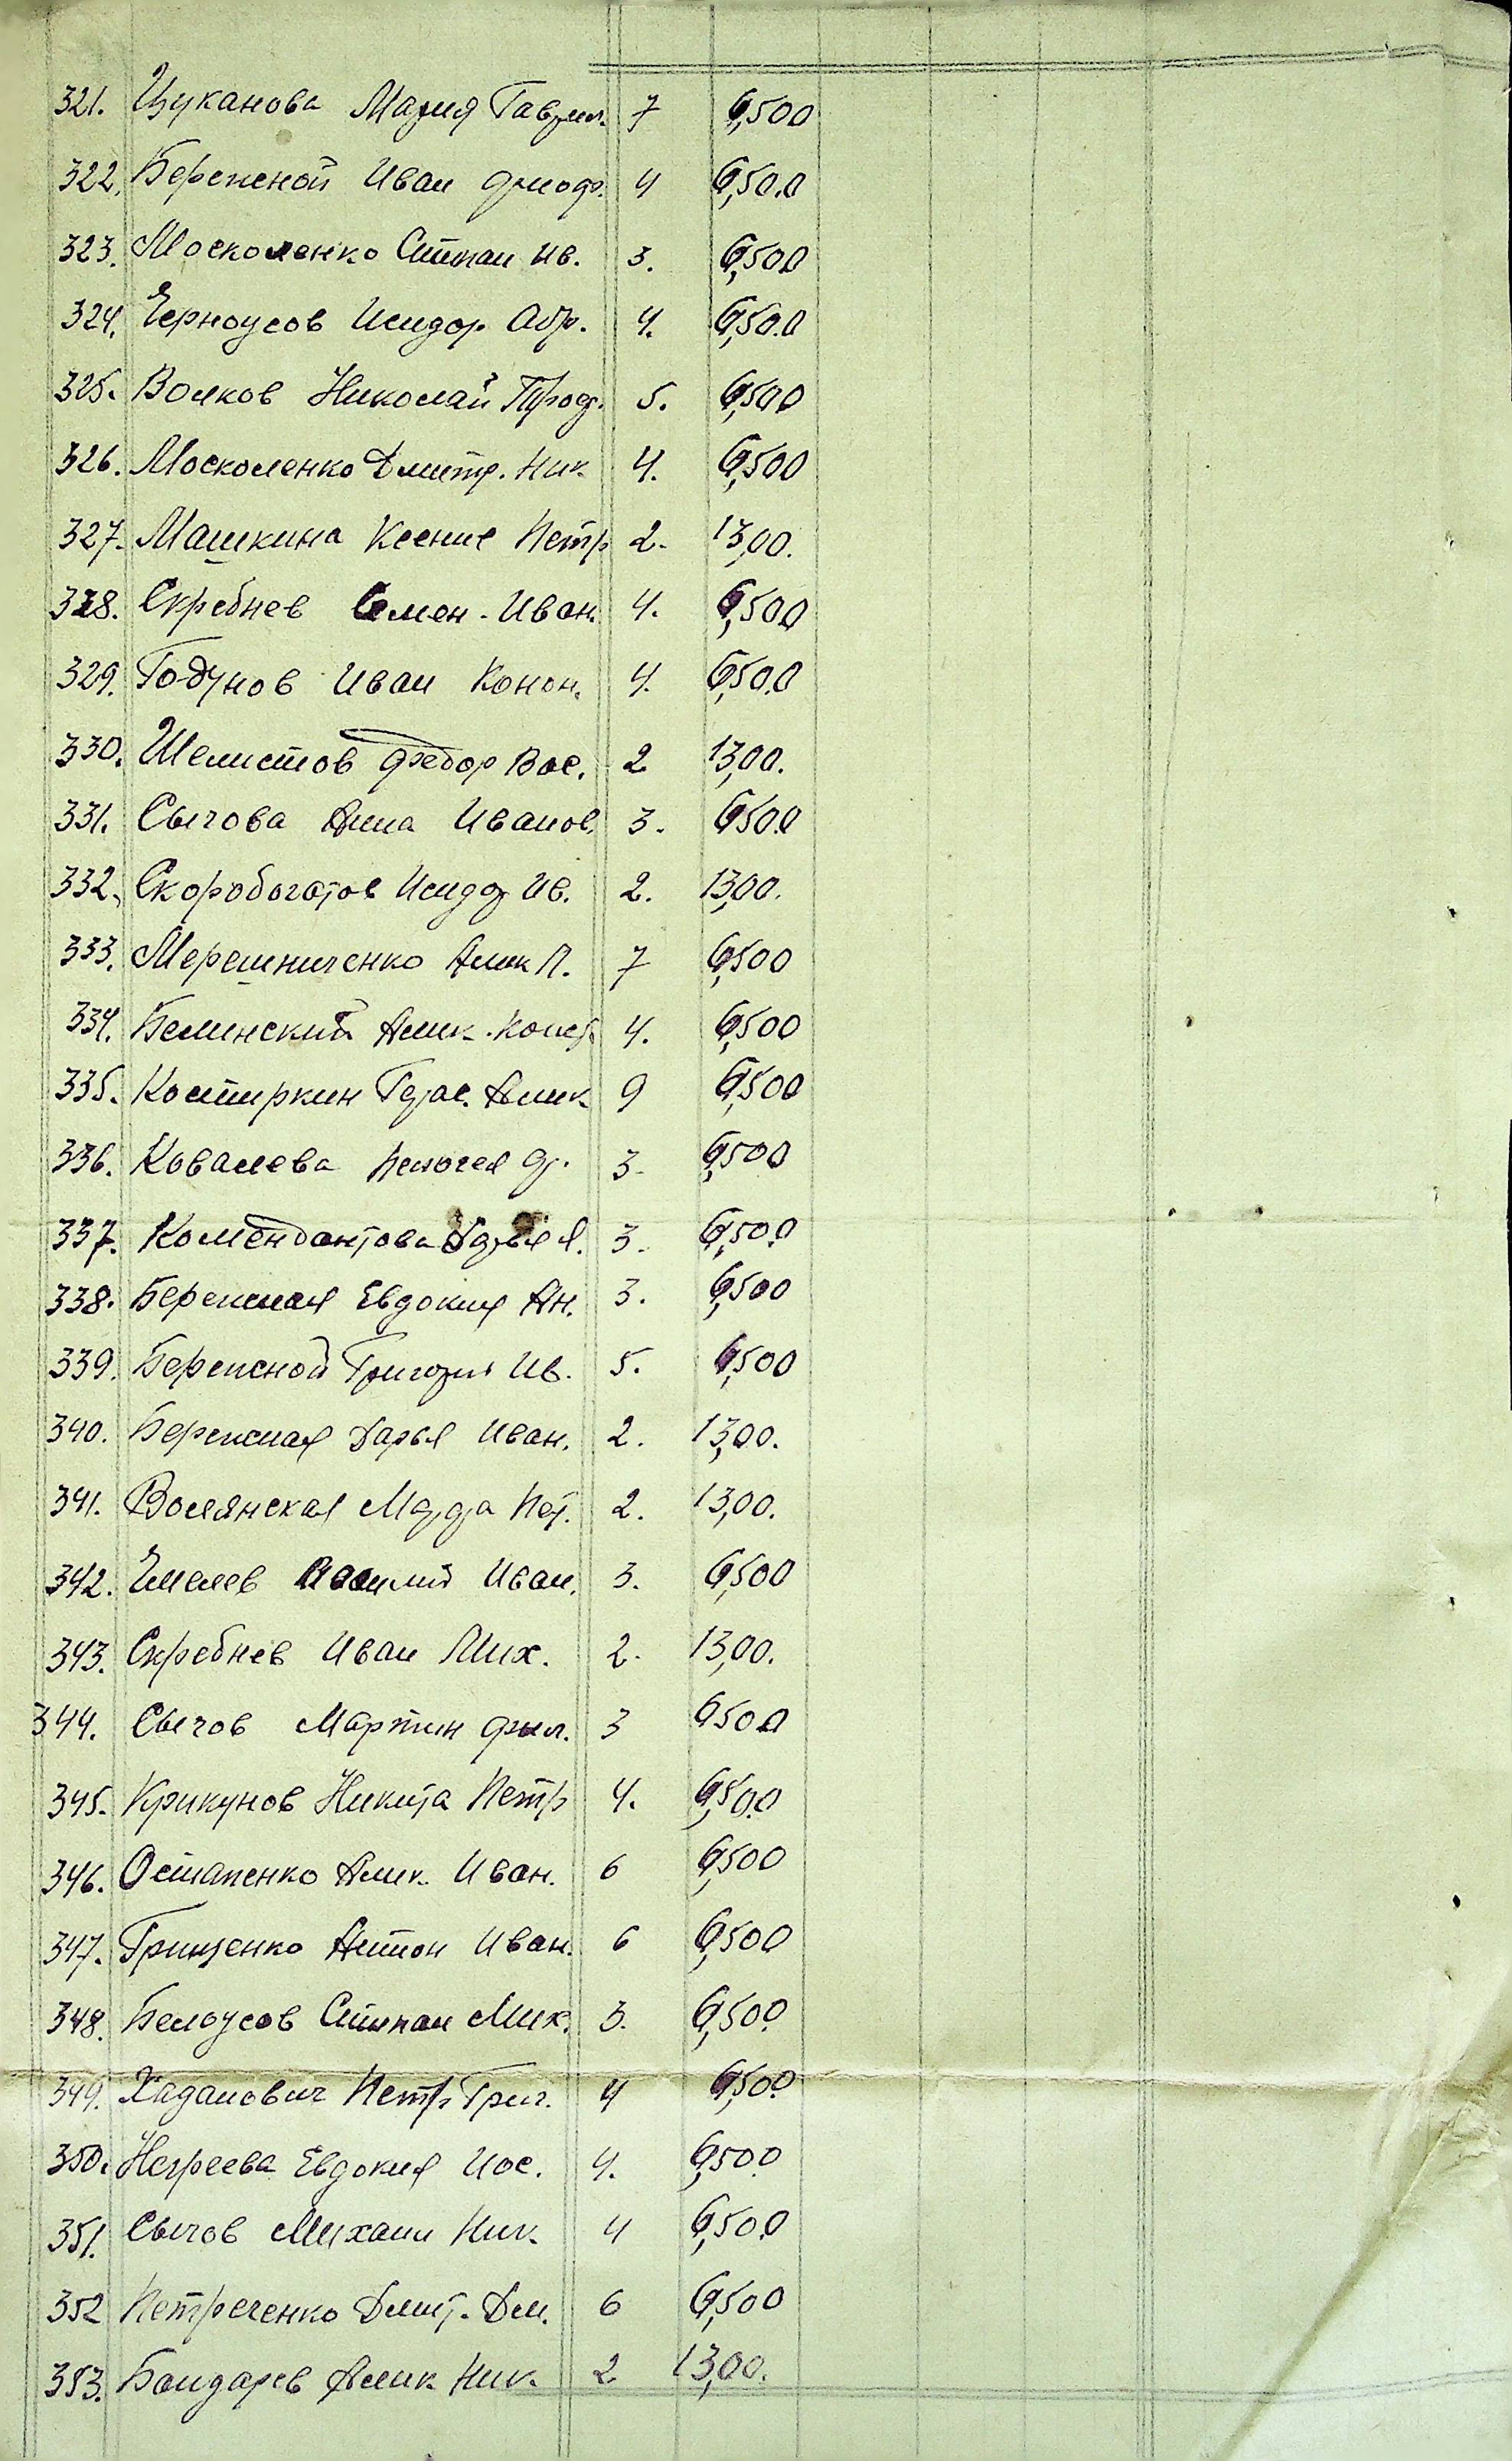 321. Цуканова Мария Гаврил. 7 6,500
322. Бережной Иван 4 6,500
323. Москоленко Степан Ив. 3. 6,500
324. Черноусов Исидор Абр. 4. 6,500
325. Волков Николай Проф. 5. 6,500
326. Москоленко Дмитр. Ник 4. 6,500
327. Машкина Ксения Петр 2. 13,00.
328. Скребнев Семен. Иван. 4. 6,500
329. Годунов Иван Конон. 4. 6,500
330. Шелистов Федор Вас. 2 13,00.
331. Сычова Анна Иванов. 3. 6,500
332. Скоробогатов Исидор Ив. 2. 13,00.
333. Мерешниченко Алек П. 7 6,500
334. Белинский Алек. Конст. 4. 6,500
335. Костиркин Герас. Алек. 9 6,500
336. Ковалева Пелогея Ф. 3. 6,500
337. Комендантова Дарья Я. 3. 6,500
338. Бережная Евдокия Ан. 3. 6,500
339. Бережной Григорий Ив. 5. 6,500
340. Бережная Дарья Иван. 2. 13,00.
341. Волянская Марфа Пет. 2. 13,00.
342. Чмелев Василий Иван. 3. 6,500
343. Скребнев Иван Мих. 2. 13,00.
344. Сычов Мартин Фил. 3 6,500
345. Крикунов Никита Петр 4. 6,500
346. Остапенко Алек. Иван. 6 6,500
347. Грищенко Антон Иван. 6 6,500
348. Белоусов Степан Мих. 3. 6,500
349. Хаданович Петр Григ. 4 6,500
350. Негреева Евдокия Иос. 4. 6,500
351. Сычов Михаил Ник. 4 6,500
352 Петреченко Дмит. Дм. 6 6,500
353. Бондарев Алек Ник. 2 13,00.